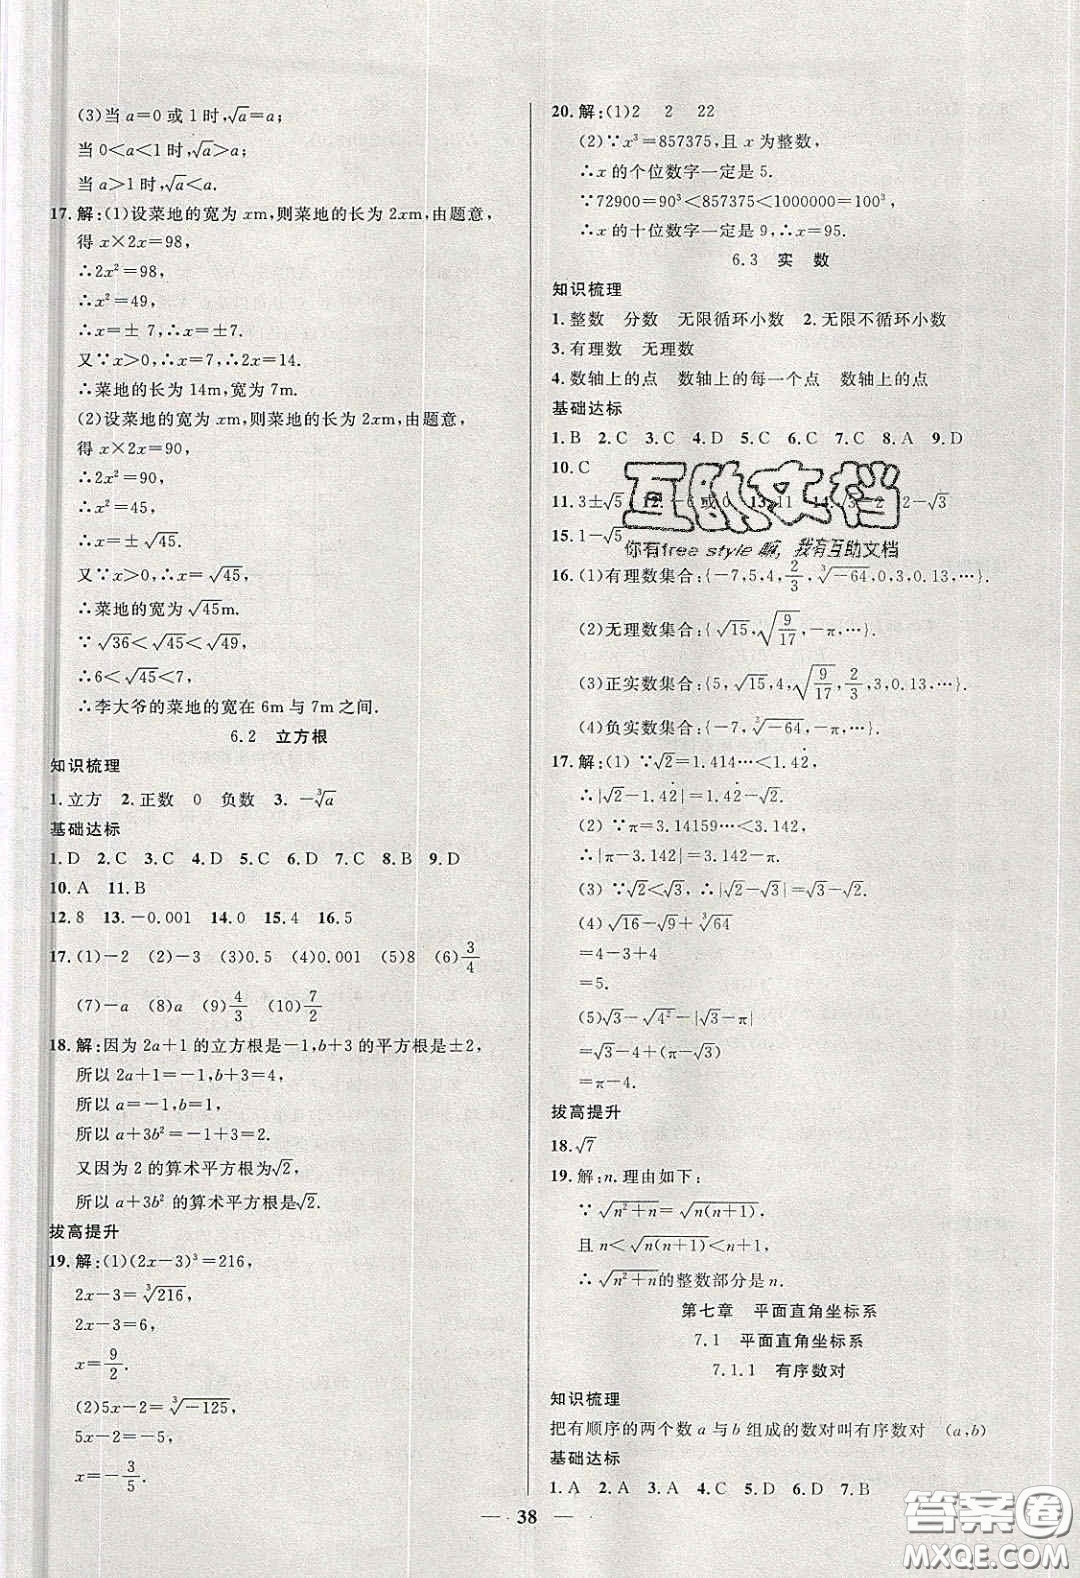 (3)当 a=0 或 1 时,√a=a;
当 0<a<1 时,√a>a;
当 a>1 时,√a<a.
17.解:(1)设菜地的宽为 xm,则菜地的长为 2xm,由题意,
得 x×2x=98,
∴2x²=98,
∴x²=49,
∴x=± 7,∴x=±7.
又∵x>0,∴x=7,∴2x=14.
∴菜地的长为 14m,宽为 7m.
(2)设菜地的宽为 xm,则菜地的长为 2xm,由题意,
得 x×2x=90,
∴2x²=90,
∴x²=45,
∴x=±√45.
又∵x>0,∴x=√45,
∴菜地的宽为√45m.
∵√36<√45<√49,
∴6<√45<7,
∴李大爷的菜地的宽在 6m 与 7m 之间.
6.2 立方根
知识梳理
1.立方 2.正数 0 负数 3.-∛a
基础达标
1.D 2.C 3.C 4.D 5.C 6.D 7.C 8.B 9.D
10.A 11.B
12.8 13.-0.001 14.0 15.4 16.5
17.(1)-2 (2)-3 (3)0.5 (4)0.001 (5)8 (6)3/4
(7)-a (8)a (9)4/3 (10)7/2
18.解:因为 2a+1 的立方根是-1,b+3 的平方根是±2,
所以 2a+1=-1,b+3=4,
所以 a=-1,b=1,
所以 a+3b²=-1+3=2.
又因为 2 的算术平方根为√2,
所以 a+3b² 的算术平方根是√2.
拔高提升
19.解:(1)(2x-3)³=216,
2x-3=∛216,
2x-3=6,
x=9/2.
(2)5x-2=∛-125,
5x-2=-5,
x=-3/5.
20.解:(1)2 2 22
(2)∵x³=857375,且 x 为整数,
∴x 的个位数字一定是 5.
∵72900=90³<857375<1000000=100³,
∴x 的十位数字一定是 9,∴x=95.
6.3 实 数
知识梳理
1.整数 分数 无限循环小数 2.无限不循环小数
3.有理数 无理数
4.数轴上的点 数轴上的每一个点 数轴上的点
基础达标
1.B 2.C 3.C 4.D 5.C 6.C 7.C 8.A 9.D
10.C
11.3±√5 12.-6或0 13.11 14.√3-2 2-√3
15.1-√5
互助文档
你有free style嘛, 我有互助文档
16.(1)有理数集合:{-7,5,4,2/3,∛-64,0,3,0.13,⋯}.
(2)无理数集合:{√15,√9/17,-π,⋯}.
(3)正实数集合:{5,√15,4,√9/17,2/3,3,0.13,⋯}.
(4)负实数集合:{-7,∛-64,-π,⋯}.
17.解:(1)∵√2=1.414⋯<1.42̇,
∴|√2-1.42̇|=1.42̇-√2.
(2)∵π=3.14159⋯<3.142,
∴|π-3.142|=3.142-π.
(3)∵√2<√3,∴|√2-√3|=√3-√2.
(4)√16-√9+∛64
=4-3+4
=5.
(5)√3-√4²-|√3-π|
=√3-4-(π-√3)
=π-4.
拔高提升
18.√7
19.解:n.理由如下:
∵√n²+n=√n(n+1),
且 n<√n(n+1)<n+1,
∴√n²+n的整数部分是 n.
第七章 平面直角坐标系
7.1 平面直角坐标系
7.1.1 有序数对
知识梳理
把有顺序的两个数 a 与 b 组成的数对叫有序数对 (a,b)
基础达标
1.A 2.A 3.A 4.C 5.D 6.D 7.B 8.C
— 38 —
答案圈
MXQE.COM